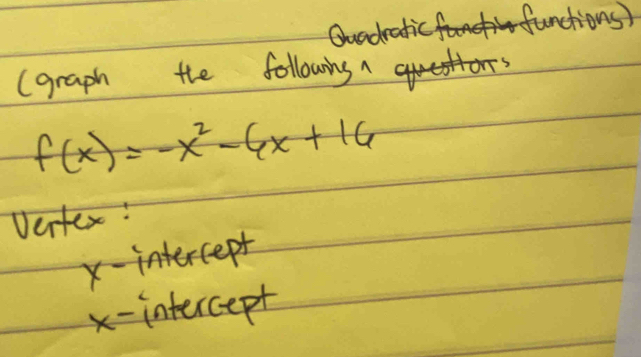 Quadratic functions)
(graph the following ^
f(x) = -x² - 6x + 16
Vertex:
y-intercept
x-intercept